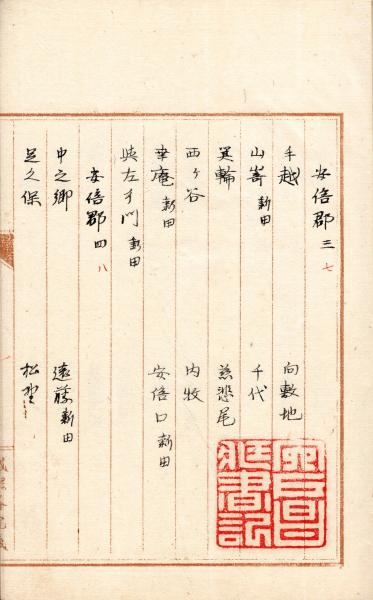 安倍郡 三 七
手越 向敷地
山嵜新田 千代
箕輪 慈悲尾
西ヶ谷 内牧
幸庵新田 安倍口新田
與左衛門新田
安倍郡 四 八
中之郷 遠藤新田
足久保 松野